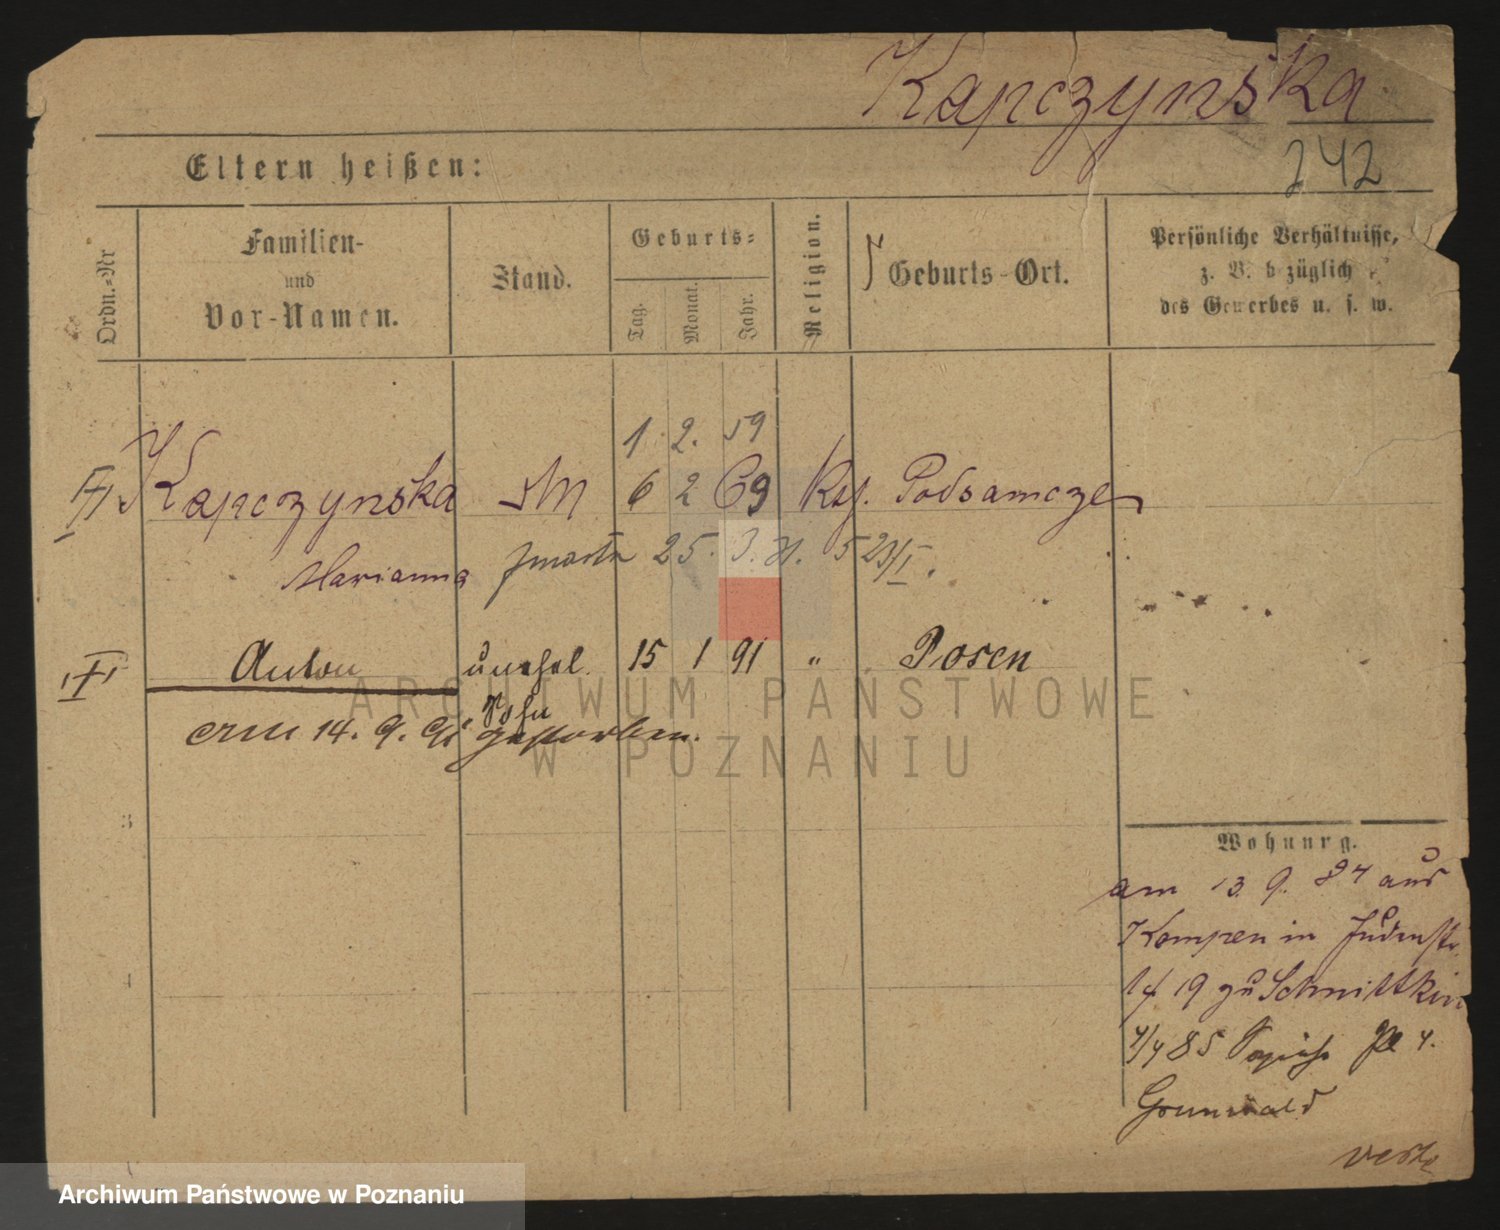 Kapczynska
242
Eltern heißen:
Ordn.-Nr
Familien- und Vor-Namen.
Stand.
Geburts=
Tag.
Monat.
Jahr.
Religion.
Geburts-Ort.
Persönliche Verhältnisse,
z. B. bezüglich
des Gewerbes u. s. w.
1. 2. 59
Kapczynska 6 2 69 Podsamcze
Marianna zmarła 25. 3.
Anton unehel. 15 1 91 " Posen
Sohn
am 14. 9. 91 gestorben.
3
4
Wohnung.
am 13. 9. 84 aus
Kempen in Judenstr.
19 zu Schmittkin
4/4 85 Sapieha Pl 4.
Grunwald
verte
ARCHIWUM PAŃSTWOWE
W POZNANIU
Archiwum Państwowe w Poznaniu